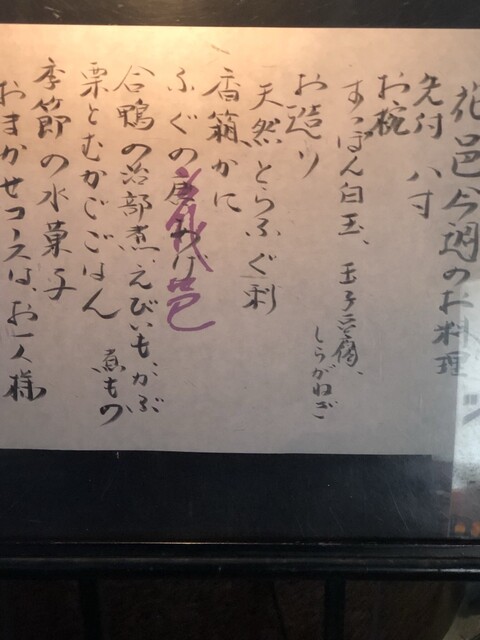 花邑今週のお料理
先付 八寸
お椀
すっぽん白玉、玉子豆腐、
しらがねぎ
お造り
天然とらふぐ刺
香箱かに
ふぐの唐わり
合鴨の治部煮、えびいも、かぶ
煮もの
栗とむかごごはん
季節の水菓子
おまかせコースは、お一人様